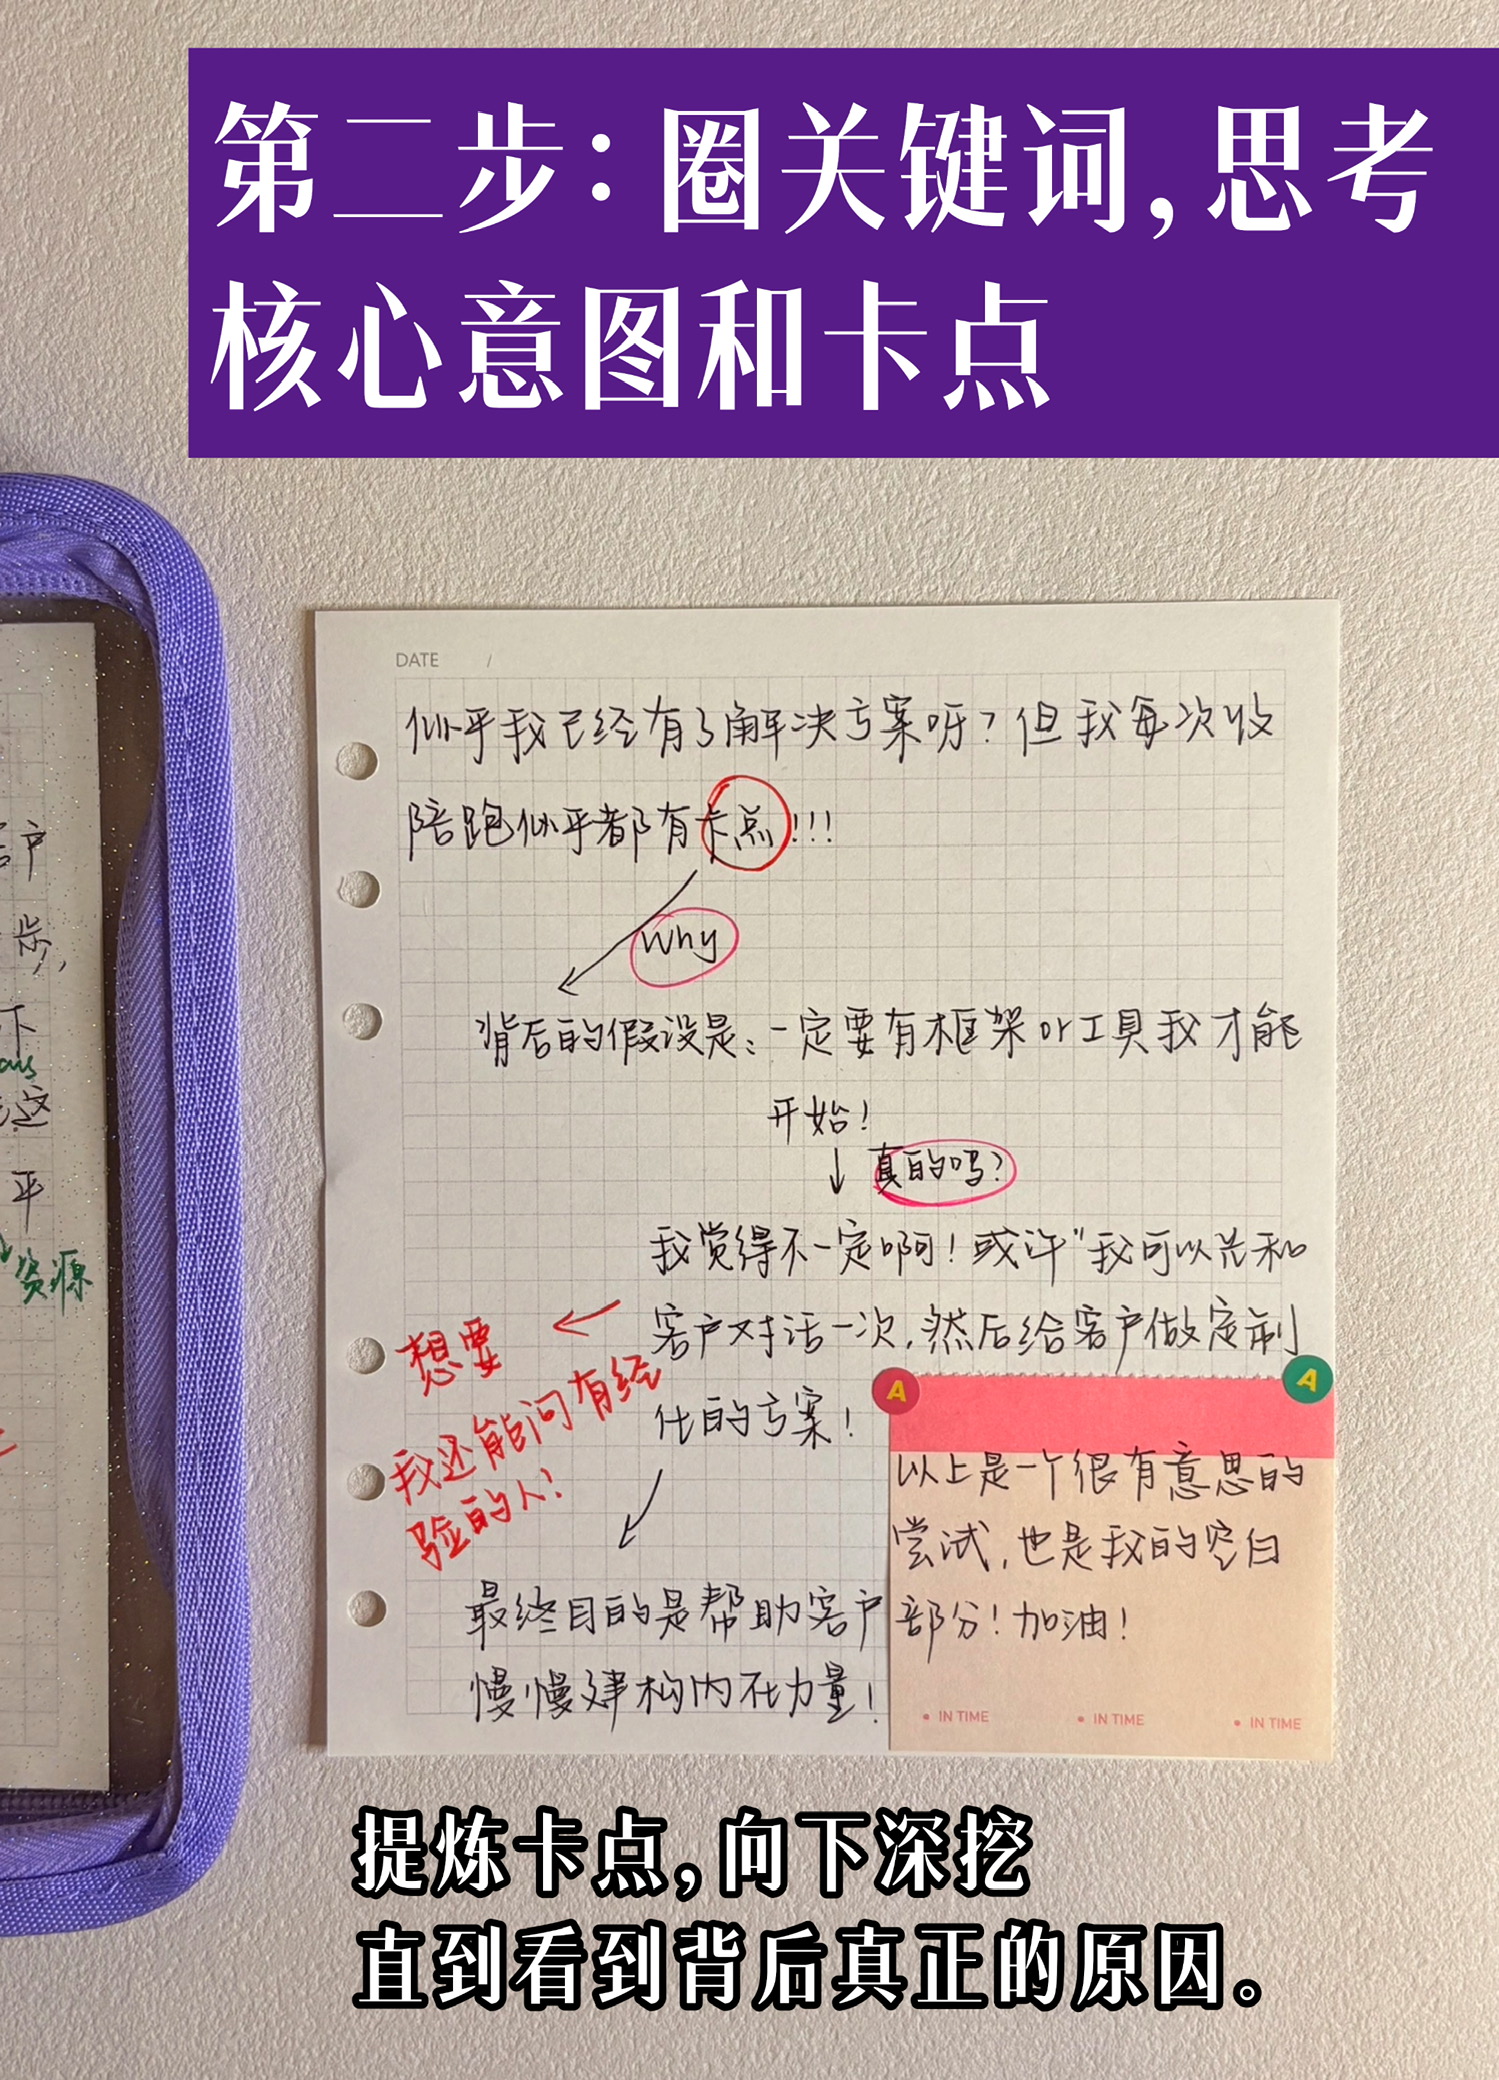 第二步：圈关键词，思考
核心意图和卡点
DATE /
似乎我已经有了解决方案呀？但我每次收
陪跑似乎都有卡点！！！
Why
背后的假设是：一定要有框架or工具我才能
开始！
真的吗？
我觉得不一定啊！或许“我可以先和
客户对话一次，然后给客户做定制
化的方案！
想要
我还能问有经
验的人！
最终目的是帮助客户
慢慢建构内在力量！
A
A
以上是一个很有意思的
尝试，也是我的空白
部分！加油！
• IN TIME • IN TIME • IN TIME
户
步，
下
这
平
资源
提炼卡点，向下深挖
直到看到背后真正的原因。